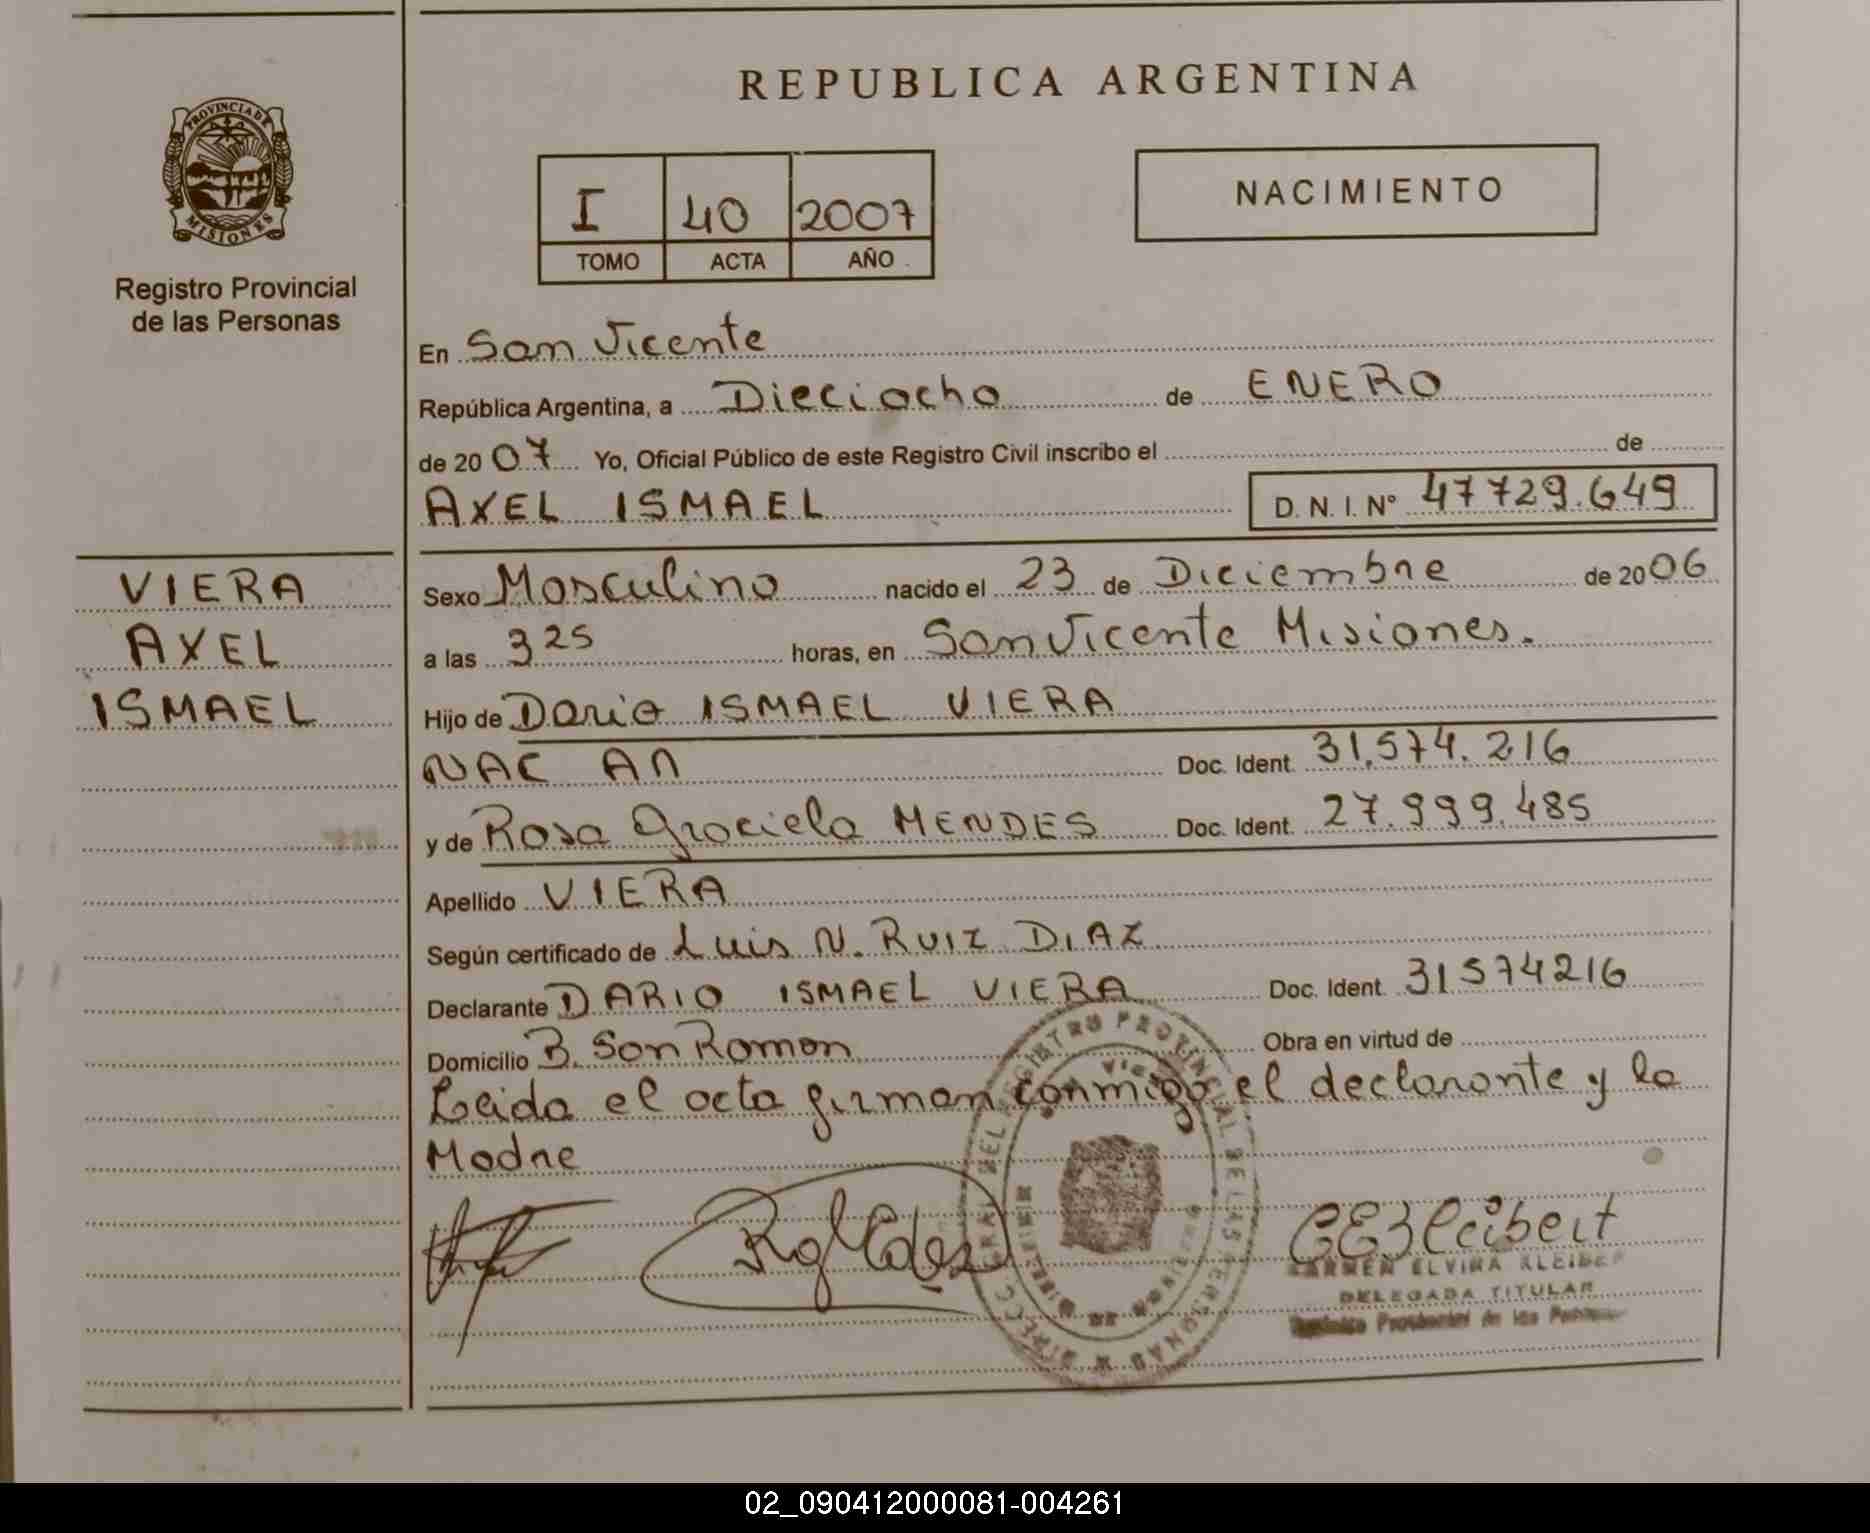 REPUBLICA ARGENTINA
PROVINCIA DE
MISIONES
Registro Provincial
de las Personas
I 40 2007
TOMO ACTA AÑO
NACIMIENTO
En San Vicente
República Argentina, a Dieciocho de ENERO
de 2007 Yo, Oficial Público de este Registro Civil inscribo el de
AXEL ISMAEL D. N. I. Nº 47729.649
VIERA
AXEL
ISMAEL
Sexo Masculino nacido el 23 de Diciembre de 2006
a las 3 25 horas, en San Vicente Misiones.
Hijo de Dario ISMAEL VIERA
NAC AR Doc. Ident. 31.574.216
y de Rosa Graciela MENDES Doc. Ident. 27.999.485
Apellido VIERA
Según certificado de Luis N. RUIZ DIAZ
Declarante DARIO ISMAEL VIERA Doc. Ident. 31574216
Domicilio B. San Ramon Obra en virtud de
Leida el acta firman conmigo el declarante y la
Madre
REGISTRO PROVINCIAL DE LAS PERSONAS
CARMEN ELVIRA KLEIBER
DELEGADA TITULAR
Provincial de las
02_090412000081-004261